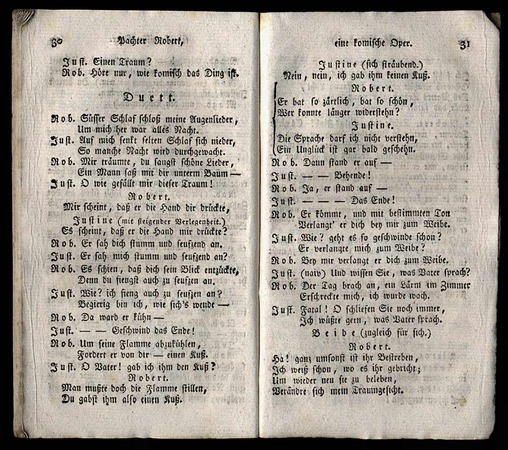 30 Pachter Robert,
Just. Einen Traum?
Rob. Höre nur, wie komisch das Ding ist.
Duett.
Rob. Süsser Schlaf schloß meine Augenlieder,
Um mich her war alles Nacht.
Just. Auf mich senkt selten Schlaf sich nieder,
So manche Nacht wird durchgewacht.
Rob. Mir träumte, du sangst schöne Lieder,
Ein Mann saß mit dir unterm Baum —
Just. O wie gefällt mir dieser Traum!
Robert.
Mir scheint, daß er die Hand dir drückte,
Justine (mit steigender Verlegenheit.)
Es scheint, daß er die Hand mir drückte?
Rob. Er sah dich stumm und seufzend an.
Just. Er sah mich stumm und seufzend an?
Rob. Es schien, daß dich sein Blick entzückte,
Denn du fiengst auch zu seufzen an.
Just. Wie? ich fieng auch zu seufzen an?
Begierig bin ich, wie sich's wende —
Rob. Da ward er kühn —
Just. — — Geschwind das Ende!
Rob. Um seine Flamme abzukühlen,
Fordert er von dir — einen Kuß.
Just. O Vater! gab ich ihm den Kuß?
Robert.
Man mußte doch die Flamme stillen,
Du gabst ihm also einen Kuß.
eine komische Oper. 31
Justine (sich sträubend.)
Nein, nein, ich gab ihm keinen Kuß.
Robert.
Er bat so zärtlich, bat so schön,
Wer konnte länger widerstehn?
Justine.
Die Sprache darf ich nicht verstehn,
Ein Unglück ist gar bald geschehn.
Rob. Dann stand er auf —
Just. — — Behende!
Rob. Ja, er stand auf —
Just. — — Das Ende!
Rob. Er kömmt, und mit bestimmten Ton
Verlangt' er dich bey mir zum Weibe.
Just. Wie? geht es so geschwinde schon?
Er verlangte mich zum Weibe?
Rob. Bey mir verlangt er dich zum Weibe.
Just. (naiv) Und wissen Sie, was Vater sprach?
Rob. Der Tag brach an, ein Lärm im Zimmer
Erschreckte mich, ich wurde wach.
Just. Fatal! O schliefen Sie noch immer,
Ich wüßte gern, was Vater sprach.
Beide (zugleich für sich.)
Robert.
Ha! ganz umsonst ist ihr Bestreben,
Ich weiß schon, wo es ihr gebricht;
Um wieder neu sie zu beleben,
Verändre sich mein Traumgesicht.